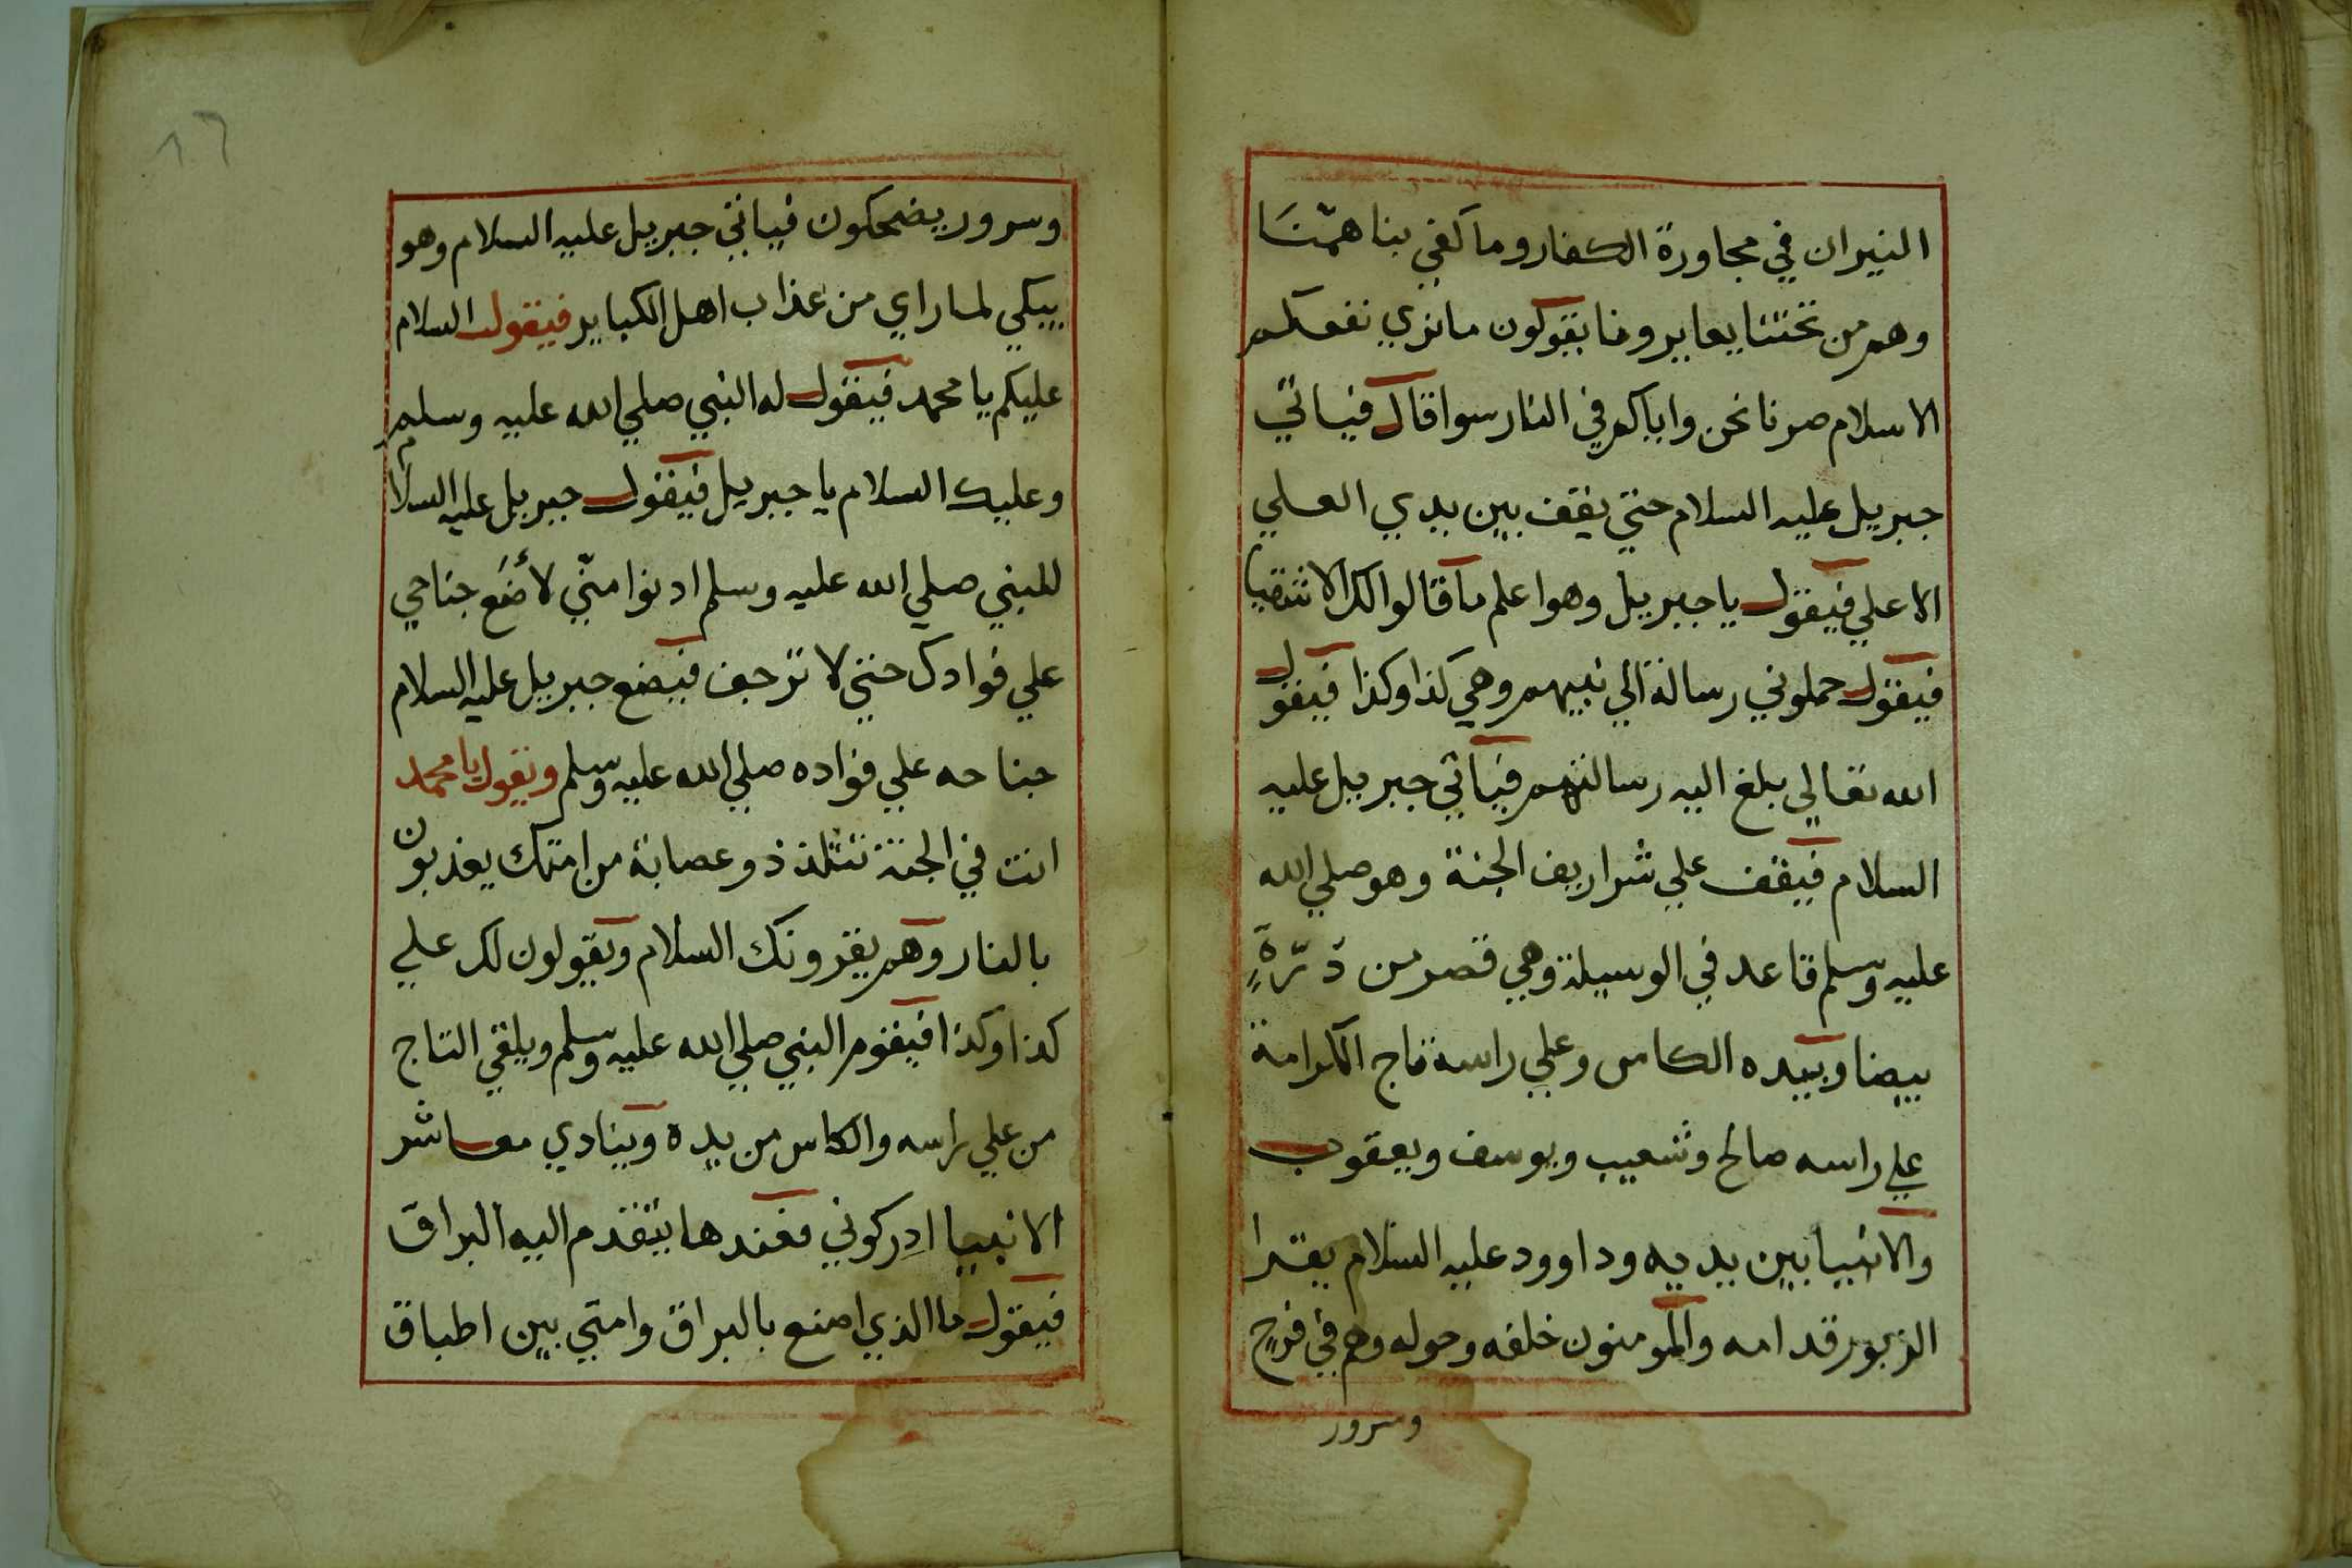 النيران في مجاورة الكفار وما كفي بنا همّنَا
وهم من تحتنا يعايرونا يقولون ما نري نفعكم
الاسلام صرنا نحن واياكم في النار سوا قال فياتي
جبريل عليه السلام حتي يقف بين يدي العلي
الاعلي فيقول يا جبريل وهو اعلم ما قالوا لك الاشقيا
فيقول حملوني رسالة الي نبيهم وهي كذا وكذا فيقول
الله تعالي بلغ اليه رسالتهم فياتي جبريل عليه
السلام فيقف علي شراريف الجنة وهو صلي الله
عليه وسلم قاعد في الوسيلة وهي قصر من دَرّةٍ
بيضا وبيده الكاس وعلي راسه تاج الكرامة
علي راسه صالح وشعيب ويوسف ويعقوب
والانبيا بين يديه وداوود عليه السلام يقرا
الزبور قدامه والمومنون خلفه وحوله وهم في فرح
وسرور
١٦
وسرور يضحكون فياتي جبريل عليه السلام وهو
يبكي لما راي من عذاب اهل الكباير فيقول السلام
عليكم يا محمد فيقول له النبي صلي الله عليه وسلم
وعليك السلام يا جبريل فيقول جبريل عليه السلام
للنبي صلي الله عليه وسلم ادنوا منّي لأضَع جناحي
علي فوادك حتي لا ترجف فيضع جبريل عليه السلام
جناحه علي فواده صلي الله عليه وسلم ويقول يا محمد
انت في الجنة تتلذذ وعصابة من امتك يعذبون
بالنار وهم يقرونك السلام ويقولون لك علي
كذا وكذا فيقوم النبي صلي الله عليه وسلم ويلقي التاج
من علي راسه والكاس من يده وينادي معاشر
الانبيا ادركوني فعندها يتقدم اليه البراق
فيقول ما الذي اصنع بالبراق وامتي بين اطباق